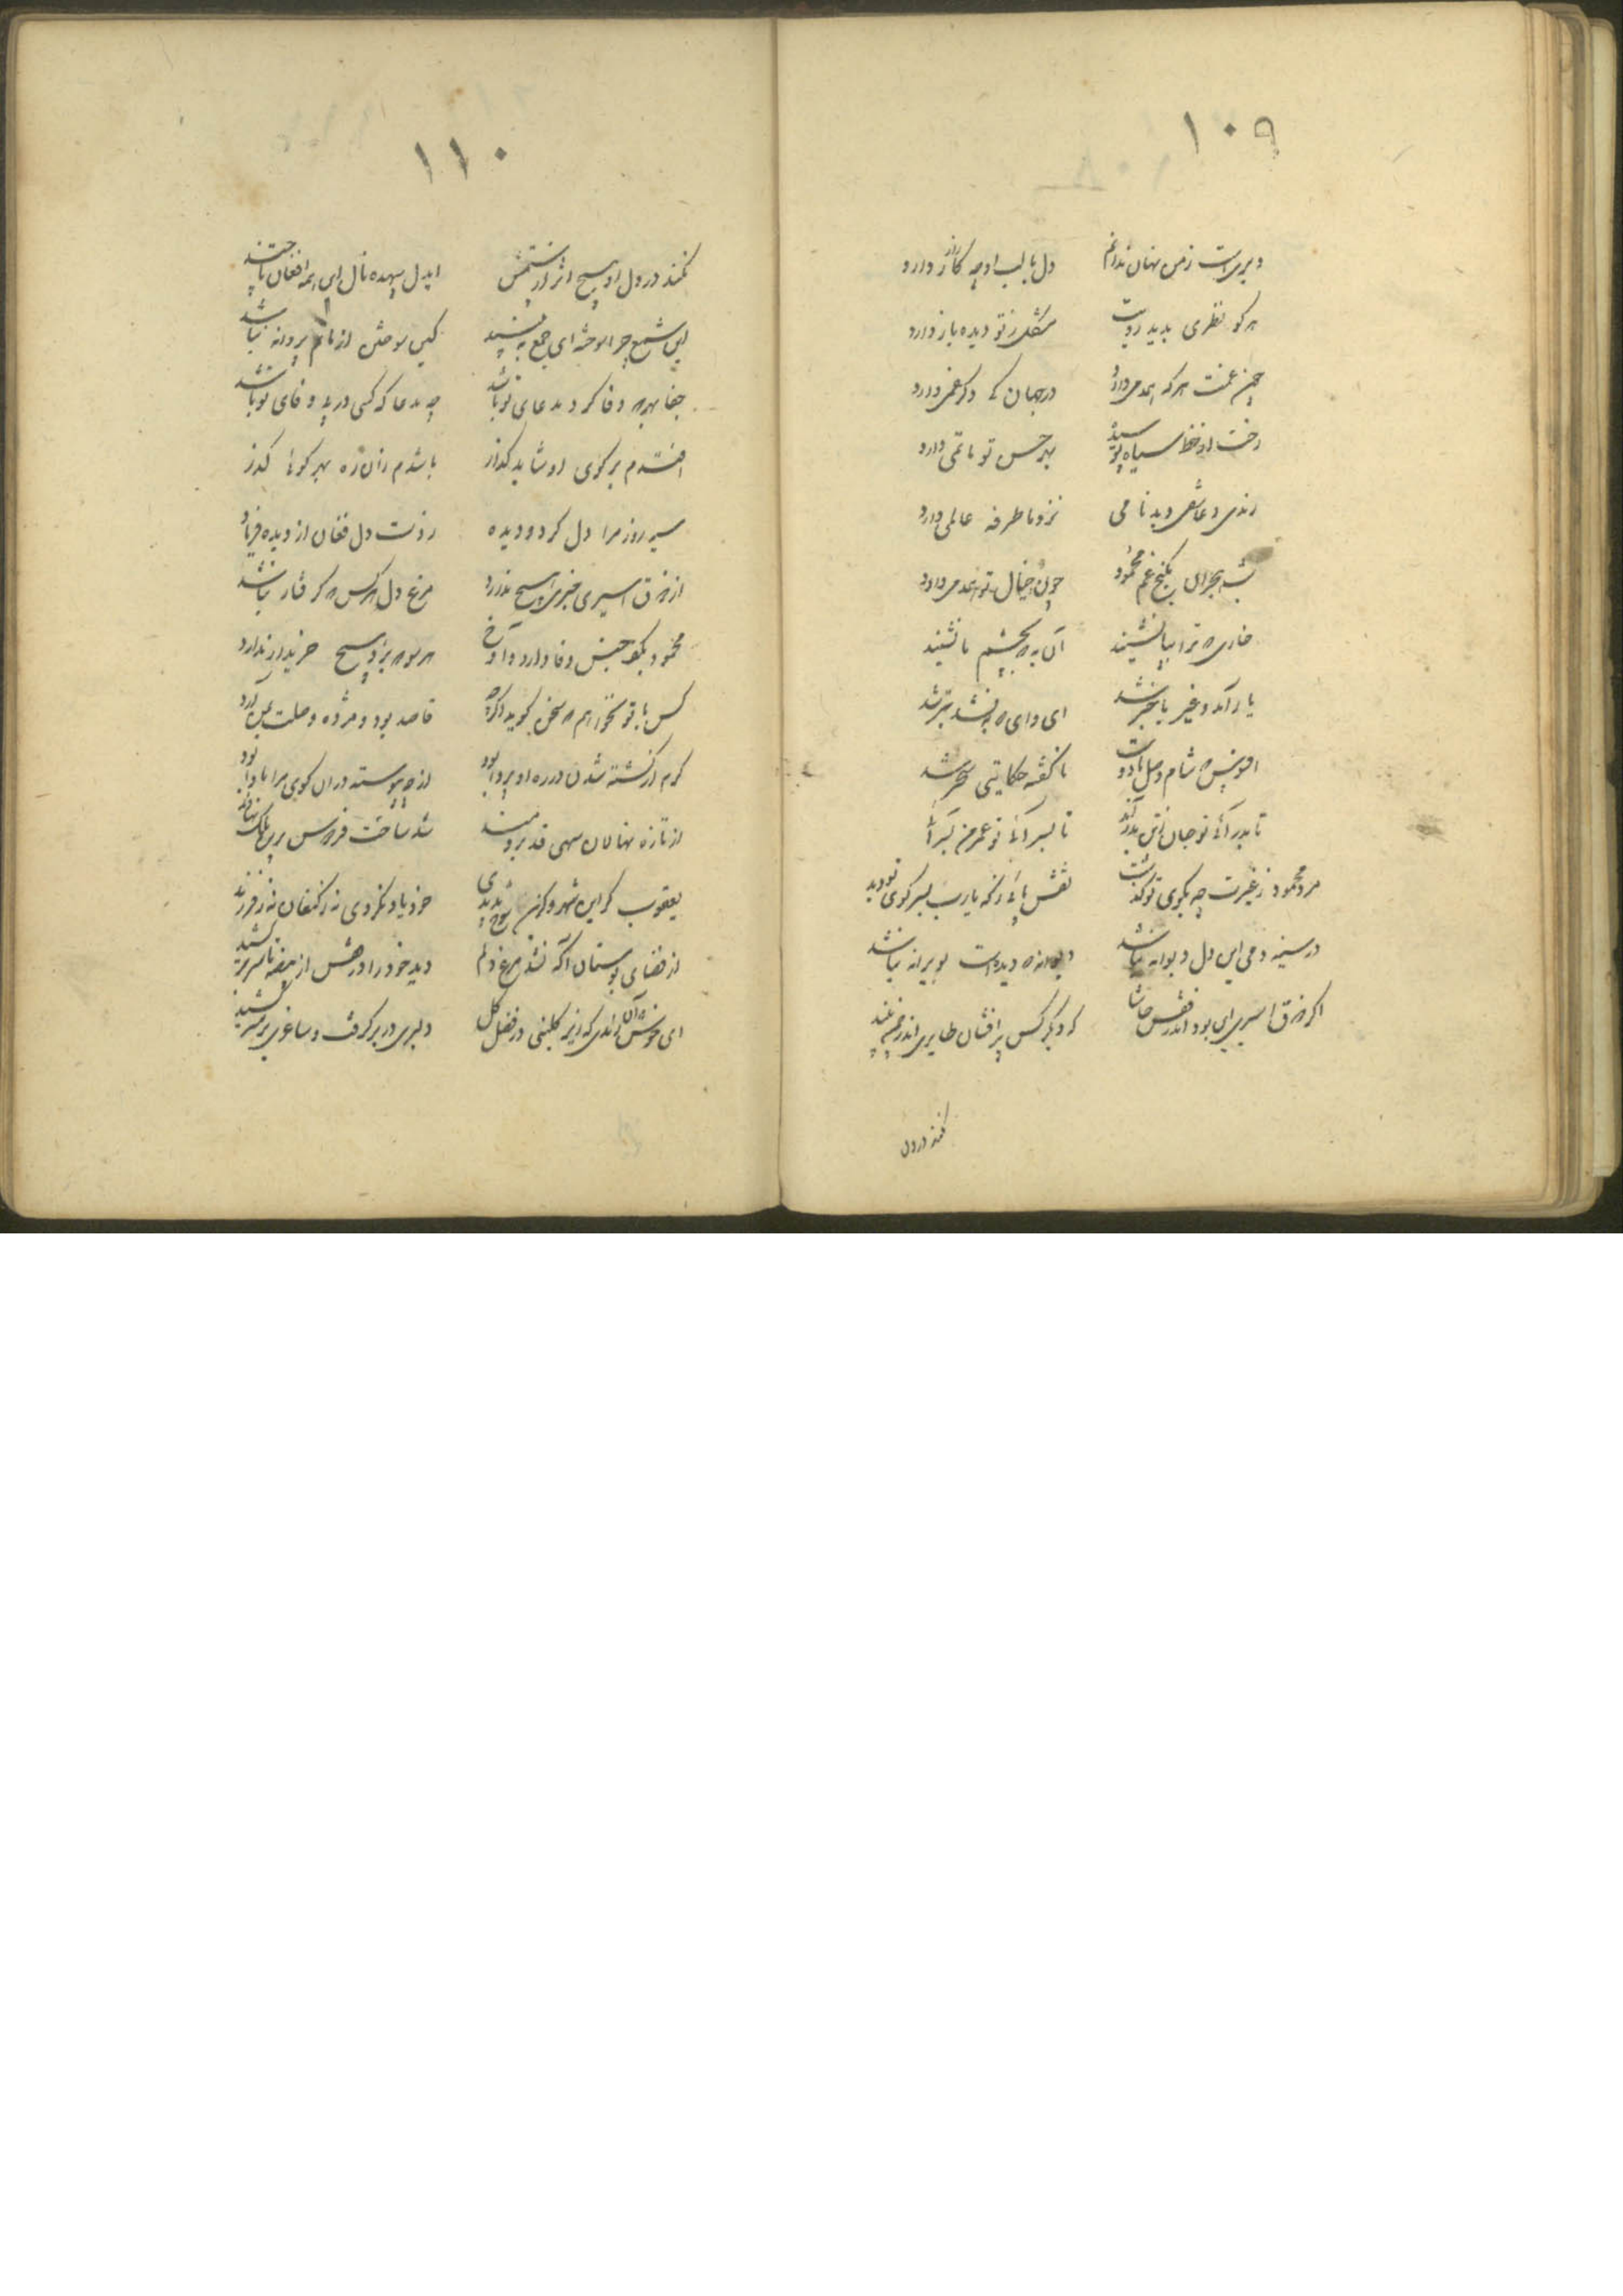 ١٠٩
دیریست زمن نهان ندانم دل با لب او چه کار دارد راز
هر کو نظری بدید رویت مشکل ز تو دیده باز دارد
غمت هر که همدمی دارد در جهان کی دگر غمی دارد
رخت از خط سیاه پوشیده بهر حسن تو ماتمی دارد
رندی و عاشقی و بدنامی نزد ما طرفه عالمی دارد
شب هجران بکنج غم محمود چون خیال تو همدمی دارد
خاری که ترا بپا نشیند آن به که بچشم ما نشیند
یار آمد و غیر با خبر شد ای وای که بد نشد بتر شد
افسوس که شام وصل نا گفته حکایتی سحر شد
تا بدر آئی تو جان تا بسر آئی تو عمرم
محمود ز غیرت چه بکوی تو گذشت نقش پائی ز که یارب بسر کوی تو دید
در سینه دمی این دل دیوانه نباشد دیوانه که دیده است بویرانه نباشد
اگر ذوق اسیری این بود اندر قفس حاشا که دیگر کس پر افشان طایری اندر چمن بیند
کند در دل
١١٠
کند در دل او هیچ اثر ایدل بیهده نال این همه افغان تا چند
این شمع چرا سوخته ای جمع به بینید کین سوختن از ماتم پروانه نباشد
جفا بهر که وفا کرد مدعای تو باشد چه مدعا که کسی در پی وفای تو باشد
افتدم بر کوی او شاید گذار باشدم زان ره بهر کوئی گذر
سیه روز مرا دل کرد و دیده ز دست دل فغان از دیده فریاد
از ذوق اسیری خبری هیچ ندارد مرغ دل هر کس که گرفتار نباشد
محمود بکف جنس وفا دارد و آوخ هر سو که برد هیچ خریدار ندارد
کس با تو نخواهم که سخن گوید اگر چه قاصد بود و مژده وصلت بمن آرد
گرم از کشته شدن در ره او پروا بود از چه پیوسته در آن کوی مرا ماوا بود
از تازه نهالان سهی قد برومند شد ساحت فردوس
یعقوب گر این شهر و خود یاد نکردی نه ز کنعان نه ز فرزند
از فضای بوستان آگه نشد مرغ دلم دید خود را در قفس از بیضه تا سر بر کشید
ای خوش آن رندی که زیر گلبنی در فصل گل دلبری در بر گرفت و ساغری بر سر کشید